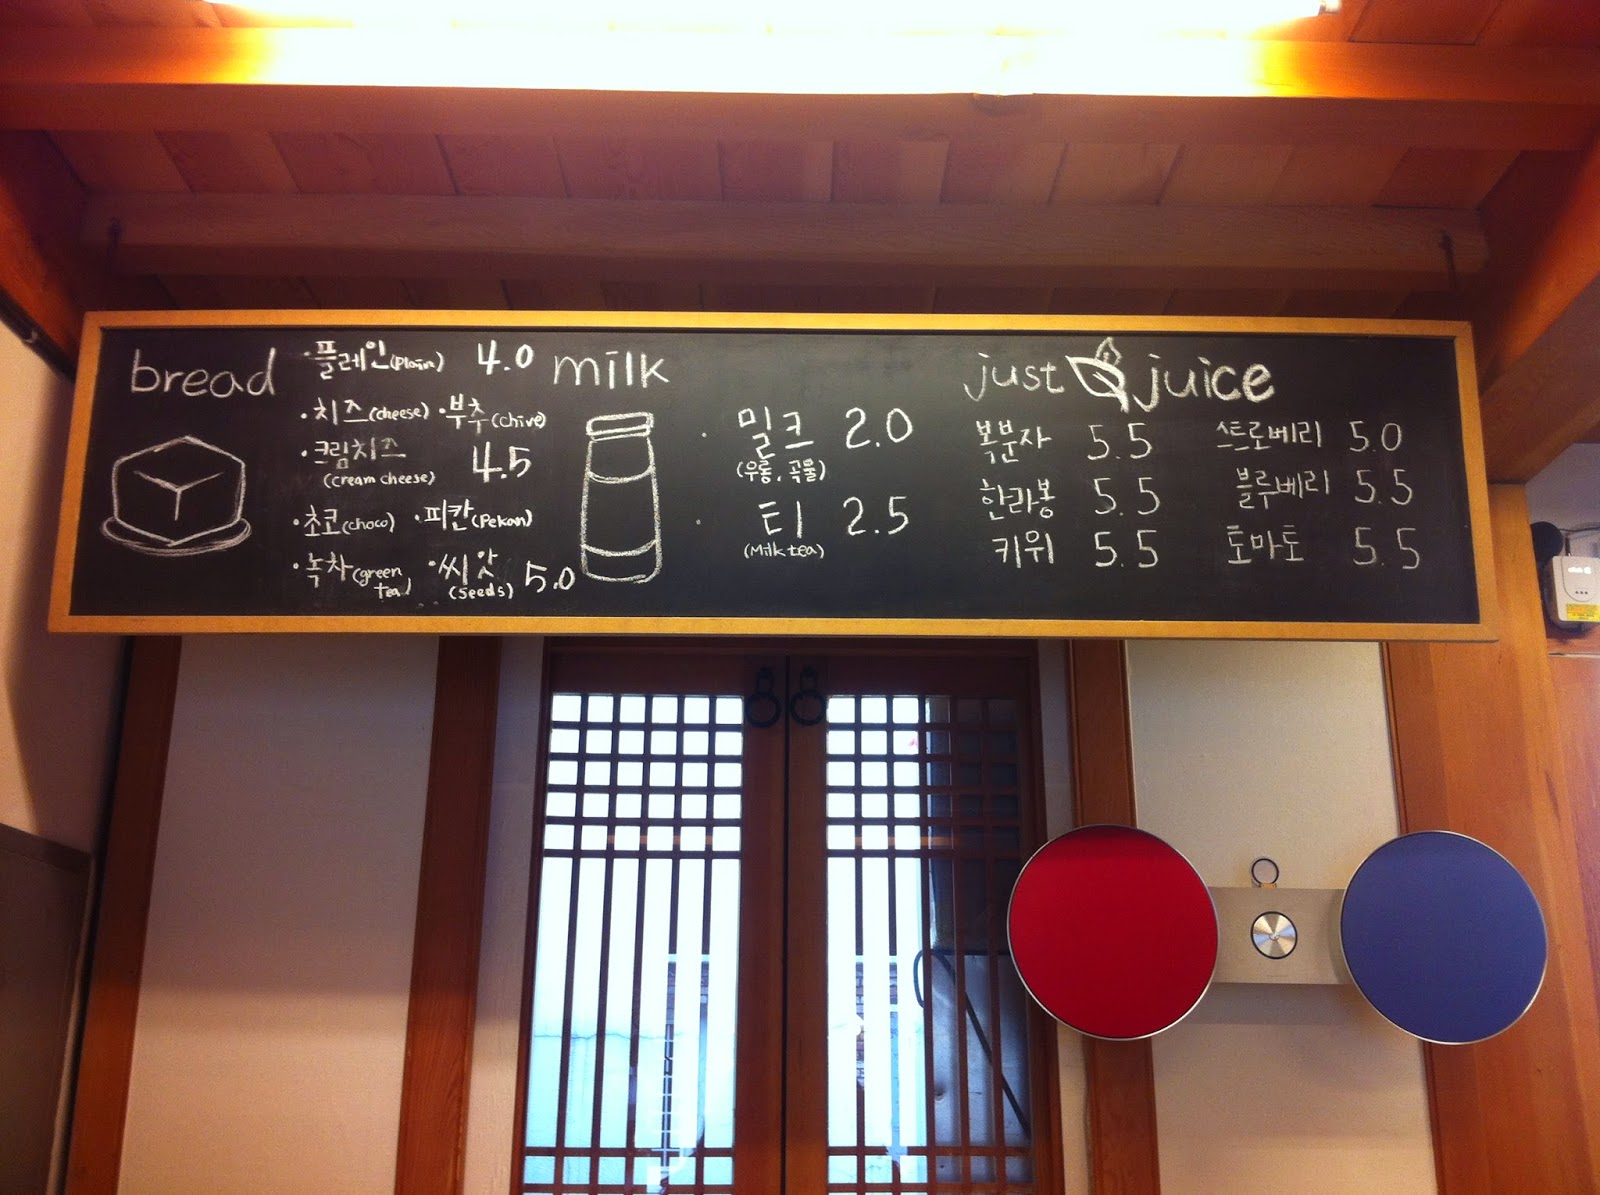 bread
·플레인(Plain) 4.0
·치즈(cheese) ·부추(chive)
·크림치즈
(cream cheese) 4.5
·초코(choco) ·피칸(Pekan)
·녹차(green tea) ·씨앗(seeds) 5.0
milk
· 밀크 2.0
(우롱, 곡물)
· 티 2.5
(Milk tea)
just juice
복분자 5.5 스트로베리 5.0
한라봉 5.5 블루베리 5.5
키위 5.5 토마토 5.5